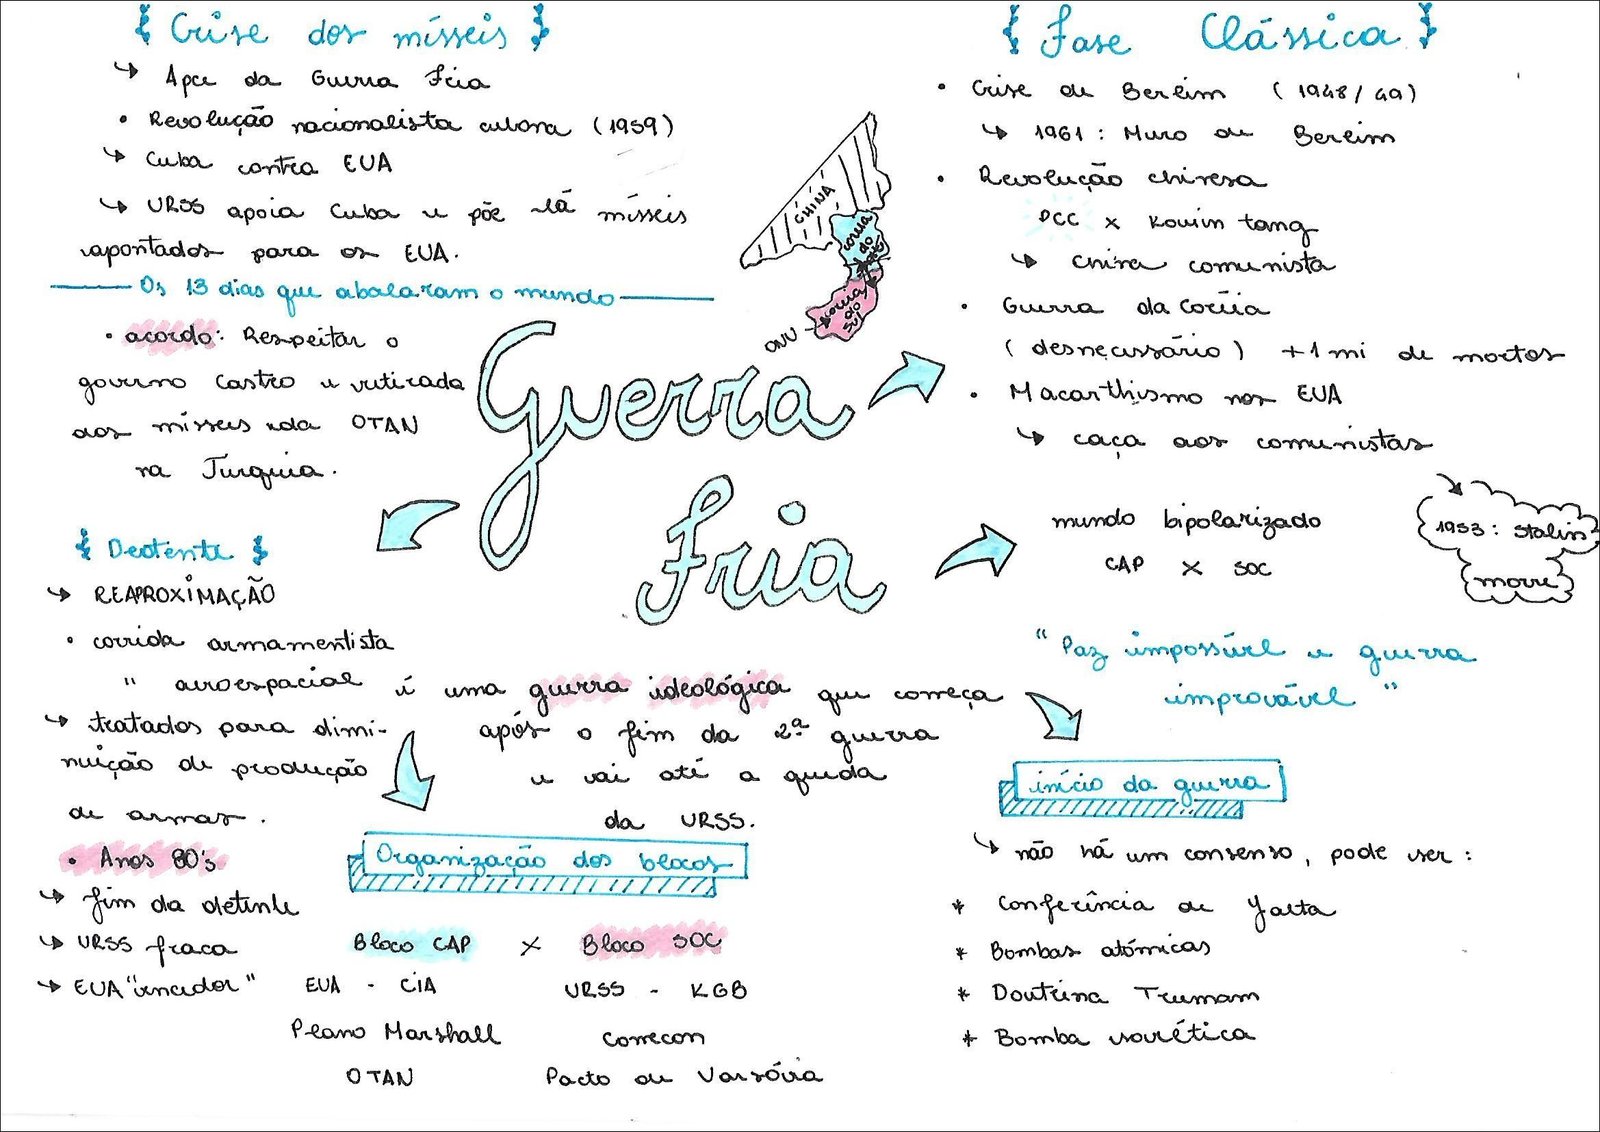 Crise dos mísseis
↳ Apce da Guerra Fria
• Revolução nacionalista cubana (1959)
↳ Cuba contra EUA
↳ URSS apoia Cuba e põe lá mísseis
apontados para os EUA.
Os 13 dias que abalaram o mundo
• acordo: Respeitar o
governo Castro e retirada
dos mísseis da OTAN
na Turquia.
Guerra
Fria
CHINA
Coreia do Norte
Coreia do Sul
ONU
Fase Clássica
• Crise de Berlim (1948/49)
↳ 1961: Muro de Berlim
• Revolução chinesa
PCC x Kouin tang
↳ China comunista
• Guerra da Coréia
(desnecessário) +1 mi de mortos
• Macarthismo nos EUA
↳ caça aos comunistas
mundo bipolarizado
CAP X SOC
1953: Stalin
morre
"Paz impossível e guerra
improvável"
Deotente
↳ REAPROXIMAÇÃO
• corrida armamentista
" aeroespacial
↳ tratados para dimi-
nuição de produção
de armas.
• Anos 80's
↳ fim da detente
↳ URSS fraca
↳ EUA "vencedor"
é uma guerra ideológica que começa
após o fim da 2ª guerra
e vai até a queda
da URSS.
Organização dos blocos
Bloco CAP X Bloco SOC
EUA - CIA URSS - KGB
Plano Marshall Comecon
OTAN Pacto de Varsóvia
início da guerra
↳ não há um consenso, pode ser:
* Conferência de Yalta
* Bombas atômicas
* Doutrina Trumam
* Bomba soviética